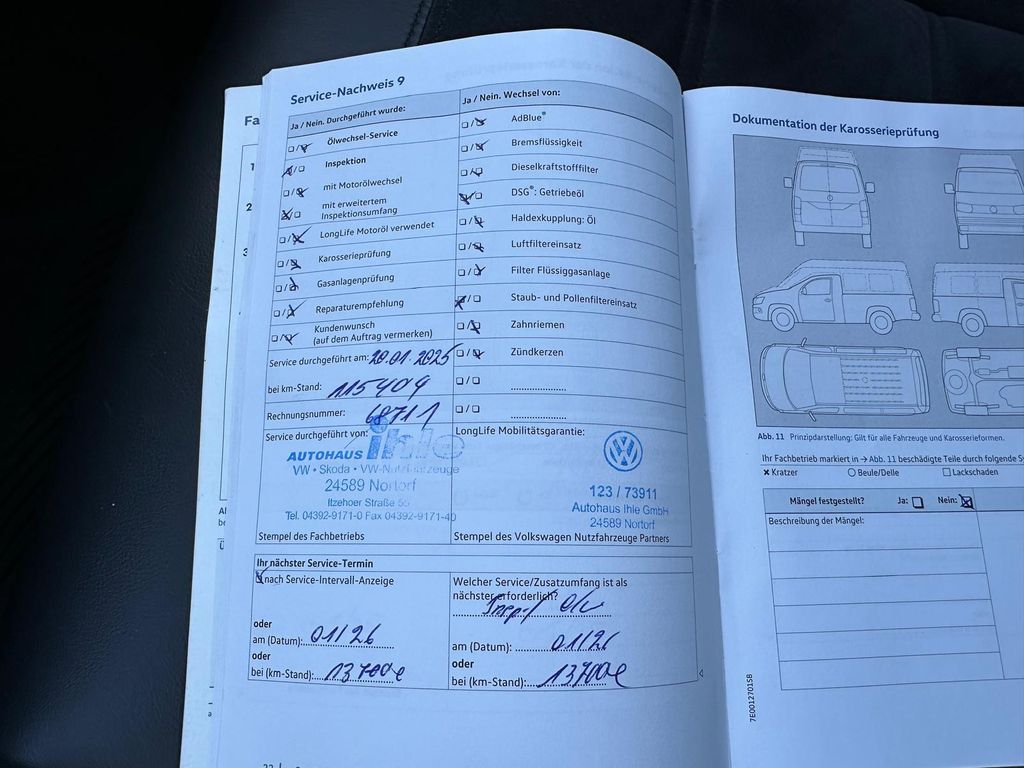 Service-Nachweis 9
Ja / Nein. Durchgeführt wurde:
Ölwechsel-Service
Inspektion
mit Motorölwechsel
mit erweitertem
Inspektionsumfang
LongLife Motoröl verwendet
Karosserieprüfung
Gasanlagenprüfung
Reparaturempfehlung
Kundenwunsch
(auf dem Auftrag vermerken)
Service durchgeführt am: 20.01.2025
bei km-Stand: 115404
Rechnungsnummer: 68711
Service durchgeführt von:
ihle
AUTOHAUS
VW • Skoda • VW-Nutzfahrzeuge
24589 Nortorf
Itzehoer Straße 55
Tel. 04392-9171-0 Fax 04392-9171-40
Stempel des Fachbetriebs
Ja / Nein. Wechsel von:
AdBlue®
Bremsflüssigkeit
Dieselkraftstofffilter
DSG®: Getriebeöl
Haldexkupplung: Öl
Luftfiltereinsatz
Filter Flüssiggasanlage
Staub- und Pollenfiltereinsatz
Zahnriemen
Zündkerzen
LongLife Mobilitätsgarantie:
123 / 73911
Autohaus Ihle GmbH
24589 Nortorf
Stempel des Volkswagen Nutzfahrzeuge Partners
Ihr nächster Service-Termin
nach Service-Intervall-Anzeige
oder
am (Datum): 01/26
oder
bei (km-Stand):
Welcher Service/Zusatzumfang ist als
nächster erforderlich?
am (Datum): 01/26
oder
bei (km-Stand):
Fa
1
2
3
Dokumentation der Karosserieprüfung
Abb. 11 Prinzipdarstellung: Gilt für alle Fahrzeuge und Karosserieformen.
Ihr Fachbetrieb markiert in → Abb. 11 beschädigte Teile durch folgende
Kratzer Beule/Delle Lackschaden
Mängel festgestellt? Ja: Nein:
Beschreibung der Mängel:
7E0012701SB